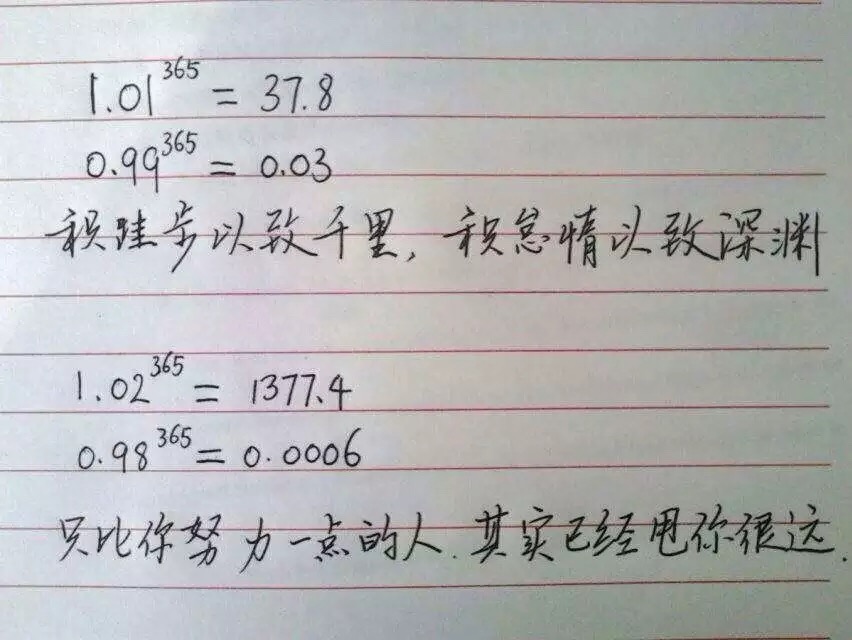 1.01³⁶⁵ = 37.8
0.99³⁶⁵ = 0.03
积跬步以致千里，积怠惰以致深渊
1.02³⁶⁵ = 1377.4
0.98³⁶⁵ = 0.0006
只比你努力一点的人.其实已经甩你很远.